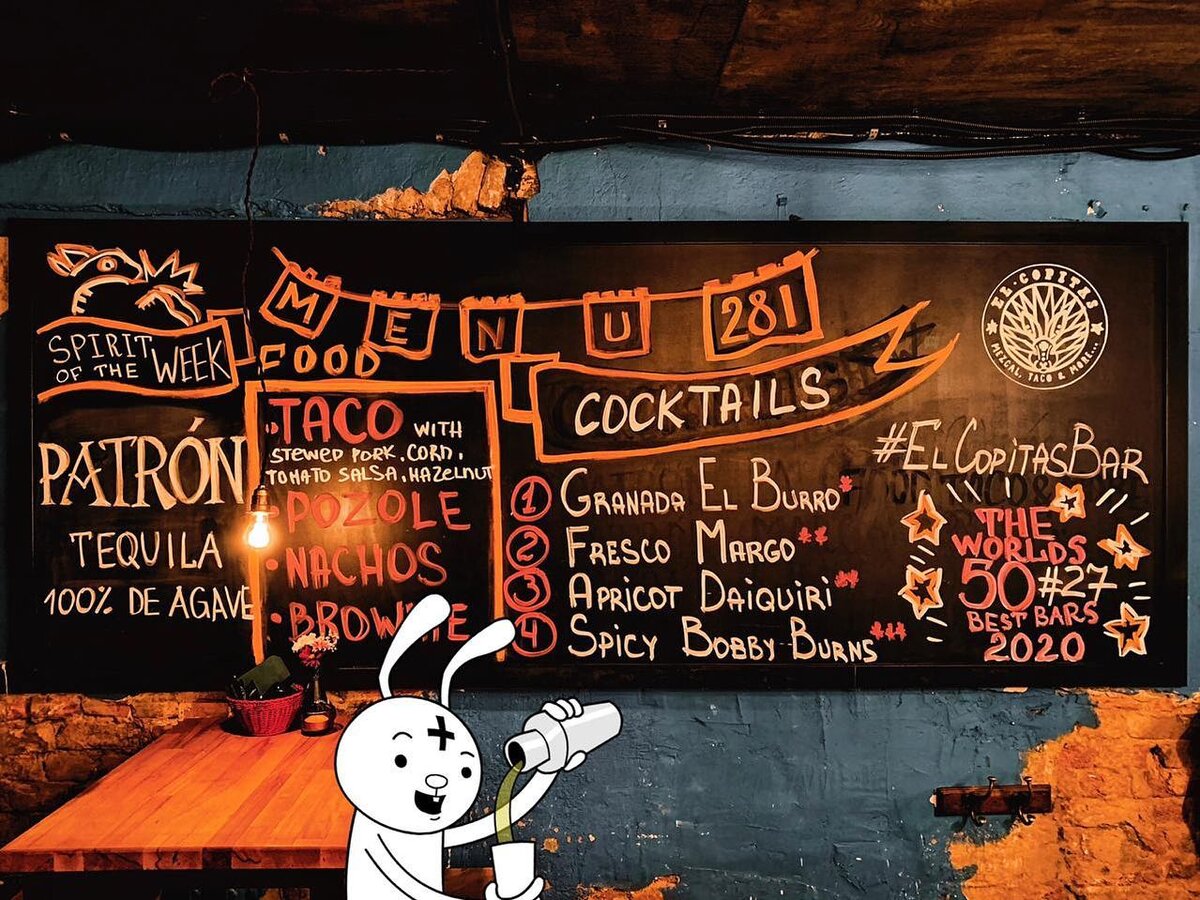 MENU 281
SPIRIT
OF THE WEEK
PATRÓN
TEQUILA
100% DE AGAVE
FOOD
• TACO WITH
STEWED PORK, CORN,
TOMATO SALSA, HAZELNUT
• POZOLE
• NACHOS
• BROWNIE
COCKTAILS
1 GRANADA EL BURRO*
2 FRESCO MARGO**
3 APRICOT DAIQUIRI**
4 SPICY BOBBY BURNS***
EL COPITAS
MEZCAL, TACO & MORE...
#ELCOPITASBAR
THE
WORLDS
50 #27
BEST BARS
2020